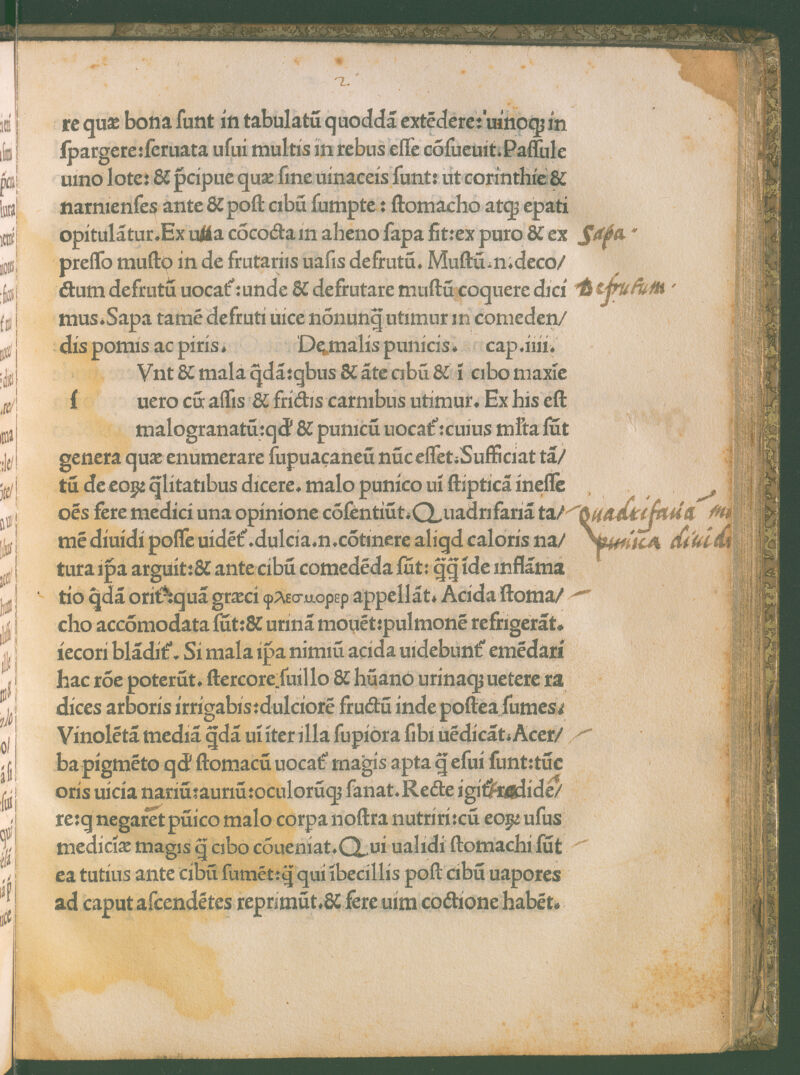 2
re quæ bona ſunt in tabulatũ quoddã extẽdere: uinoqꝫ in
ſpargere:ſeruata uſui multis in rebus eſſe cõſueuit.Paſſule
uino lote: & p̃cipue quæ ſine uinaceis ſunt: ut corinthie &
narnienſes ante & poſt cibũ ſumpte : ſtomacho atqꝫ epati
opitulãtur.Ex uua cõcocta in aheno ſapa fit:ex puro & ex
Sapa
preſſo muſto in de frutariis uaſis defrutũ. Muſtũ.n.deco/
ctum defrutũ uocat᷑:unde & defrutare muſtũ coquere dici
Defrutum
mus.Sapa tamẽ defruti uice nõnunq̃ utimur in comeden/
dis pomis ac piris. De malis punicis. cap.iiii.
Vnt & mala q̃dã:qbus & ãte cibũ & ĩ cibo maxĩe
ſ uero cũ aſſis & frictis carnibus utimur. Ex his eſt
malogranatũ:qđ & punicũ uocat᷑:cuius mľta ſũt
genera quæ enumerare ſupuacaneũ nũc eſſet.Sufficiat tã/
tũ de eoꝝ q̃litatibus dicere. malo punico uĩ ſtipticã ineſſe
oẽs fere medici una opinione cõſentiũt.Quadrifariã ta/
Quadrifaria m
mẽ diuidi poſſe uidẽt᷑.dulcia.n.cõtinere aliqd caloris na/
punica diuidi
tura ip̃a arguit:& ante cibũ comedẽda ſũt: q̃q̃ ĩde inflãma
tio q̃dã orit᷑:quã græci φλεσιιορερ appellãt. Acida ſtoma/
cho accõmodata ſũt:& urinã mouẽt:pulmonẽ refrigerãt.
iecori blãdit᷑. Si mala ip̃a nimiũ acida uidebunt᷑ emẽdari
hac rõe poterũt. ſtercore ſuillo & hũano urinaqꝫ uetere ra
dices arboris irrigabis:dulciorẽ fructũ inde poſtea ſumes.
Vinolẽtã mediã q̃dã uĩ iter illa ſupiora ſibi uẽdicãt.Acer/
ba pigmẽto qđ ſtomacũ uocat᷑ magis apta q̃ eſui ſunt:tũc
oris uicia nariũ:auriũ:oculorũqꝫ ſanat.Recte igit᷑ credidẽ/
re:q negaret pũico malo corpa noſtra nutriri:cũ eoꝝ uſus
mediciæ magis q̃ cibo cõueniat.Qui ualidi ſtomachi ſũt
ea tutius ante cibũ ſumẽt:q̃ qui ĩbecillis poſt cibũ uapores
ad caput aſcendẽtes reprimũt.& fere uim coctione habẽt.